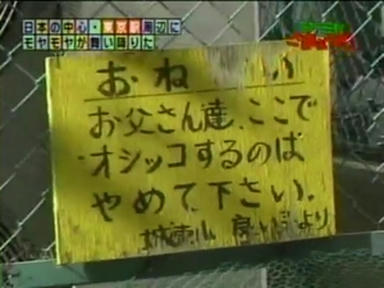 日本の中心・東京駅周辺に
モヤモヤが舞い降りた
おね い
お父さん達、ここで
オシッコするのは
やめて下さい。
より